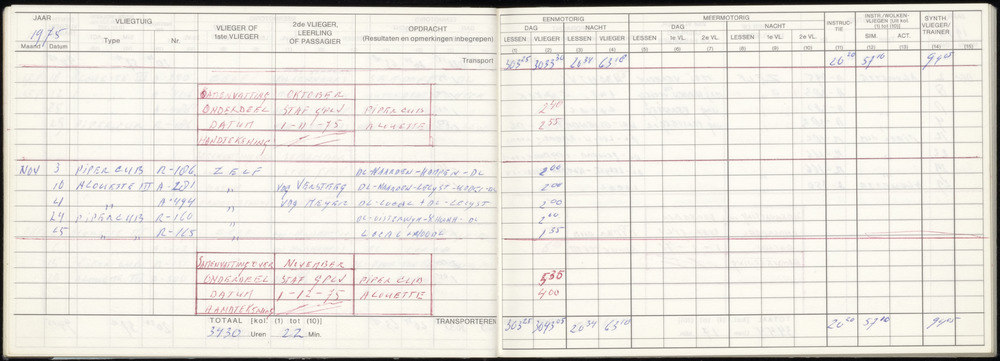 JAAR VLIEGTUIG VLIEGER OF 1ste VLIEGER 2de VLIEGER, LEERLING OF PASSAGIER OPDRACHT (Resultaten en opmerkingen inbegrepen) EENMOTORIG MEERMOTORIG INSTRUCTIE INSTR./WOLKENVLIEGEN (Uit kol. (1) tot (10)) SYNTH. VLIEGER/TRAINER
1975 DAG NACHT DAG NACHT
Maand Datum Type Nr. LESSEN VLIEGER LESSEN VLIEGER LESSEN 1e VL. 2e VL. LESSEN 1e VL. 2e VL. SIM. ACT.
(1) (2) (3) (4) (5) (6) (7) (8) (9) (10) (11) (12) (13) (14) (15)
Transport 303 25 3033 30 26 34 63 10 20 20 57 10 94 05
SAMENVATTING OKTOBER
ONDERDEEL STAF GPLV PIPER CUB 2 40
DATUM 1-11-75 ALOUETTE 2 55
HANDTEKENING
NOV 3 PIPER CUB R-186 ZELF DL-NAARDEN-KAMPEN-DL 2 00
10 ALOUETTE III A-281 " VDG VERSTEEG 2 00
A-494 " VDG MEYER DL-LOCAL + DL-LELYST 2 00
24 PIPER CUB R-160 " 2 00
25 " " R-165 " 1 35
SAMENVATTING OVER NOVEMBER
ONDERDEEL STAF GPLV PIPER CUB 5 35
DATUM 1-12-75 ALOUETTE 4 00
HANDTEKENING
TOTAAL [kol. (1) tot (10)] TRANSPORTEREN 303 25 3043 05 26 34 63 10 20 20 57 10 94 05
3430 Uren 22 Min.